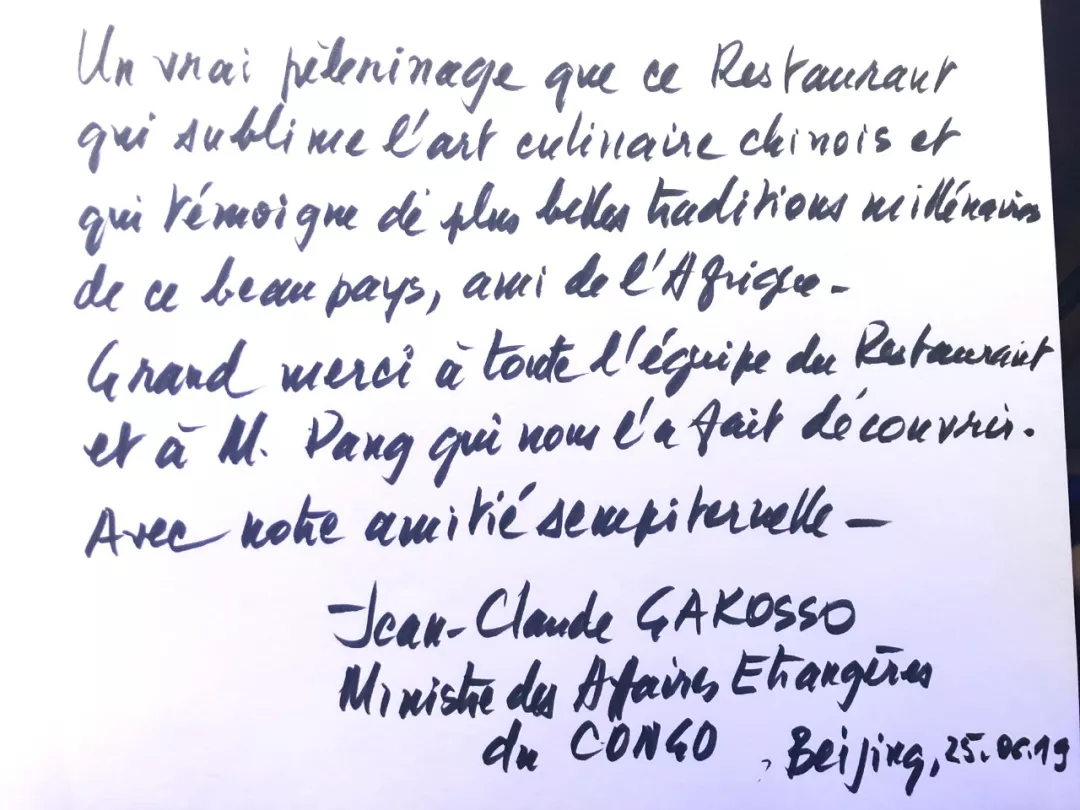 Un vrai pèlerinage que ce Restaurant
qui sublime l'art culinaire chinois et
qui témoigne de plus belles traditions millénaires
de ce beau pays, ami de l'Afrique -
Grand merci à toute l'équipe du Restaurant
et à M. Pang qui nous l'a fait découvrir.
Avec notre amitié sempiternelle -
Jean-Claude GAKOSSO
Ministre des Affaires Etrangères
du CONGO
Beijing, 25.06.19